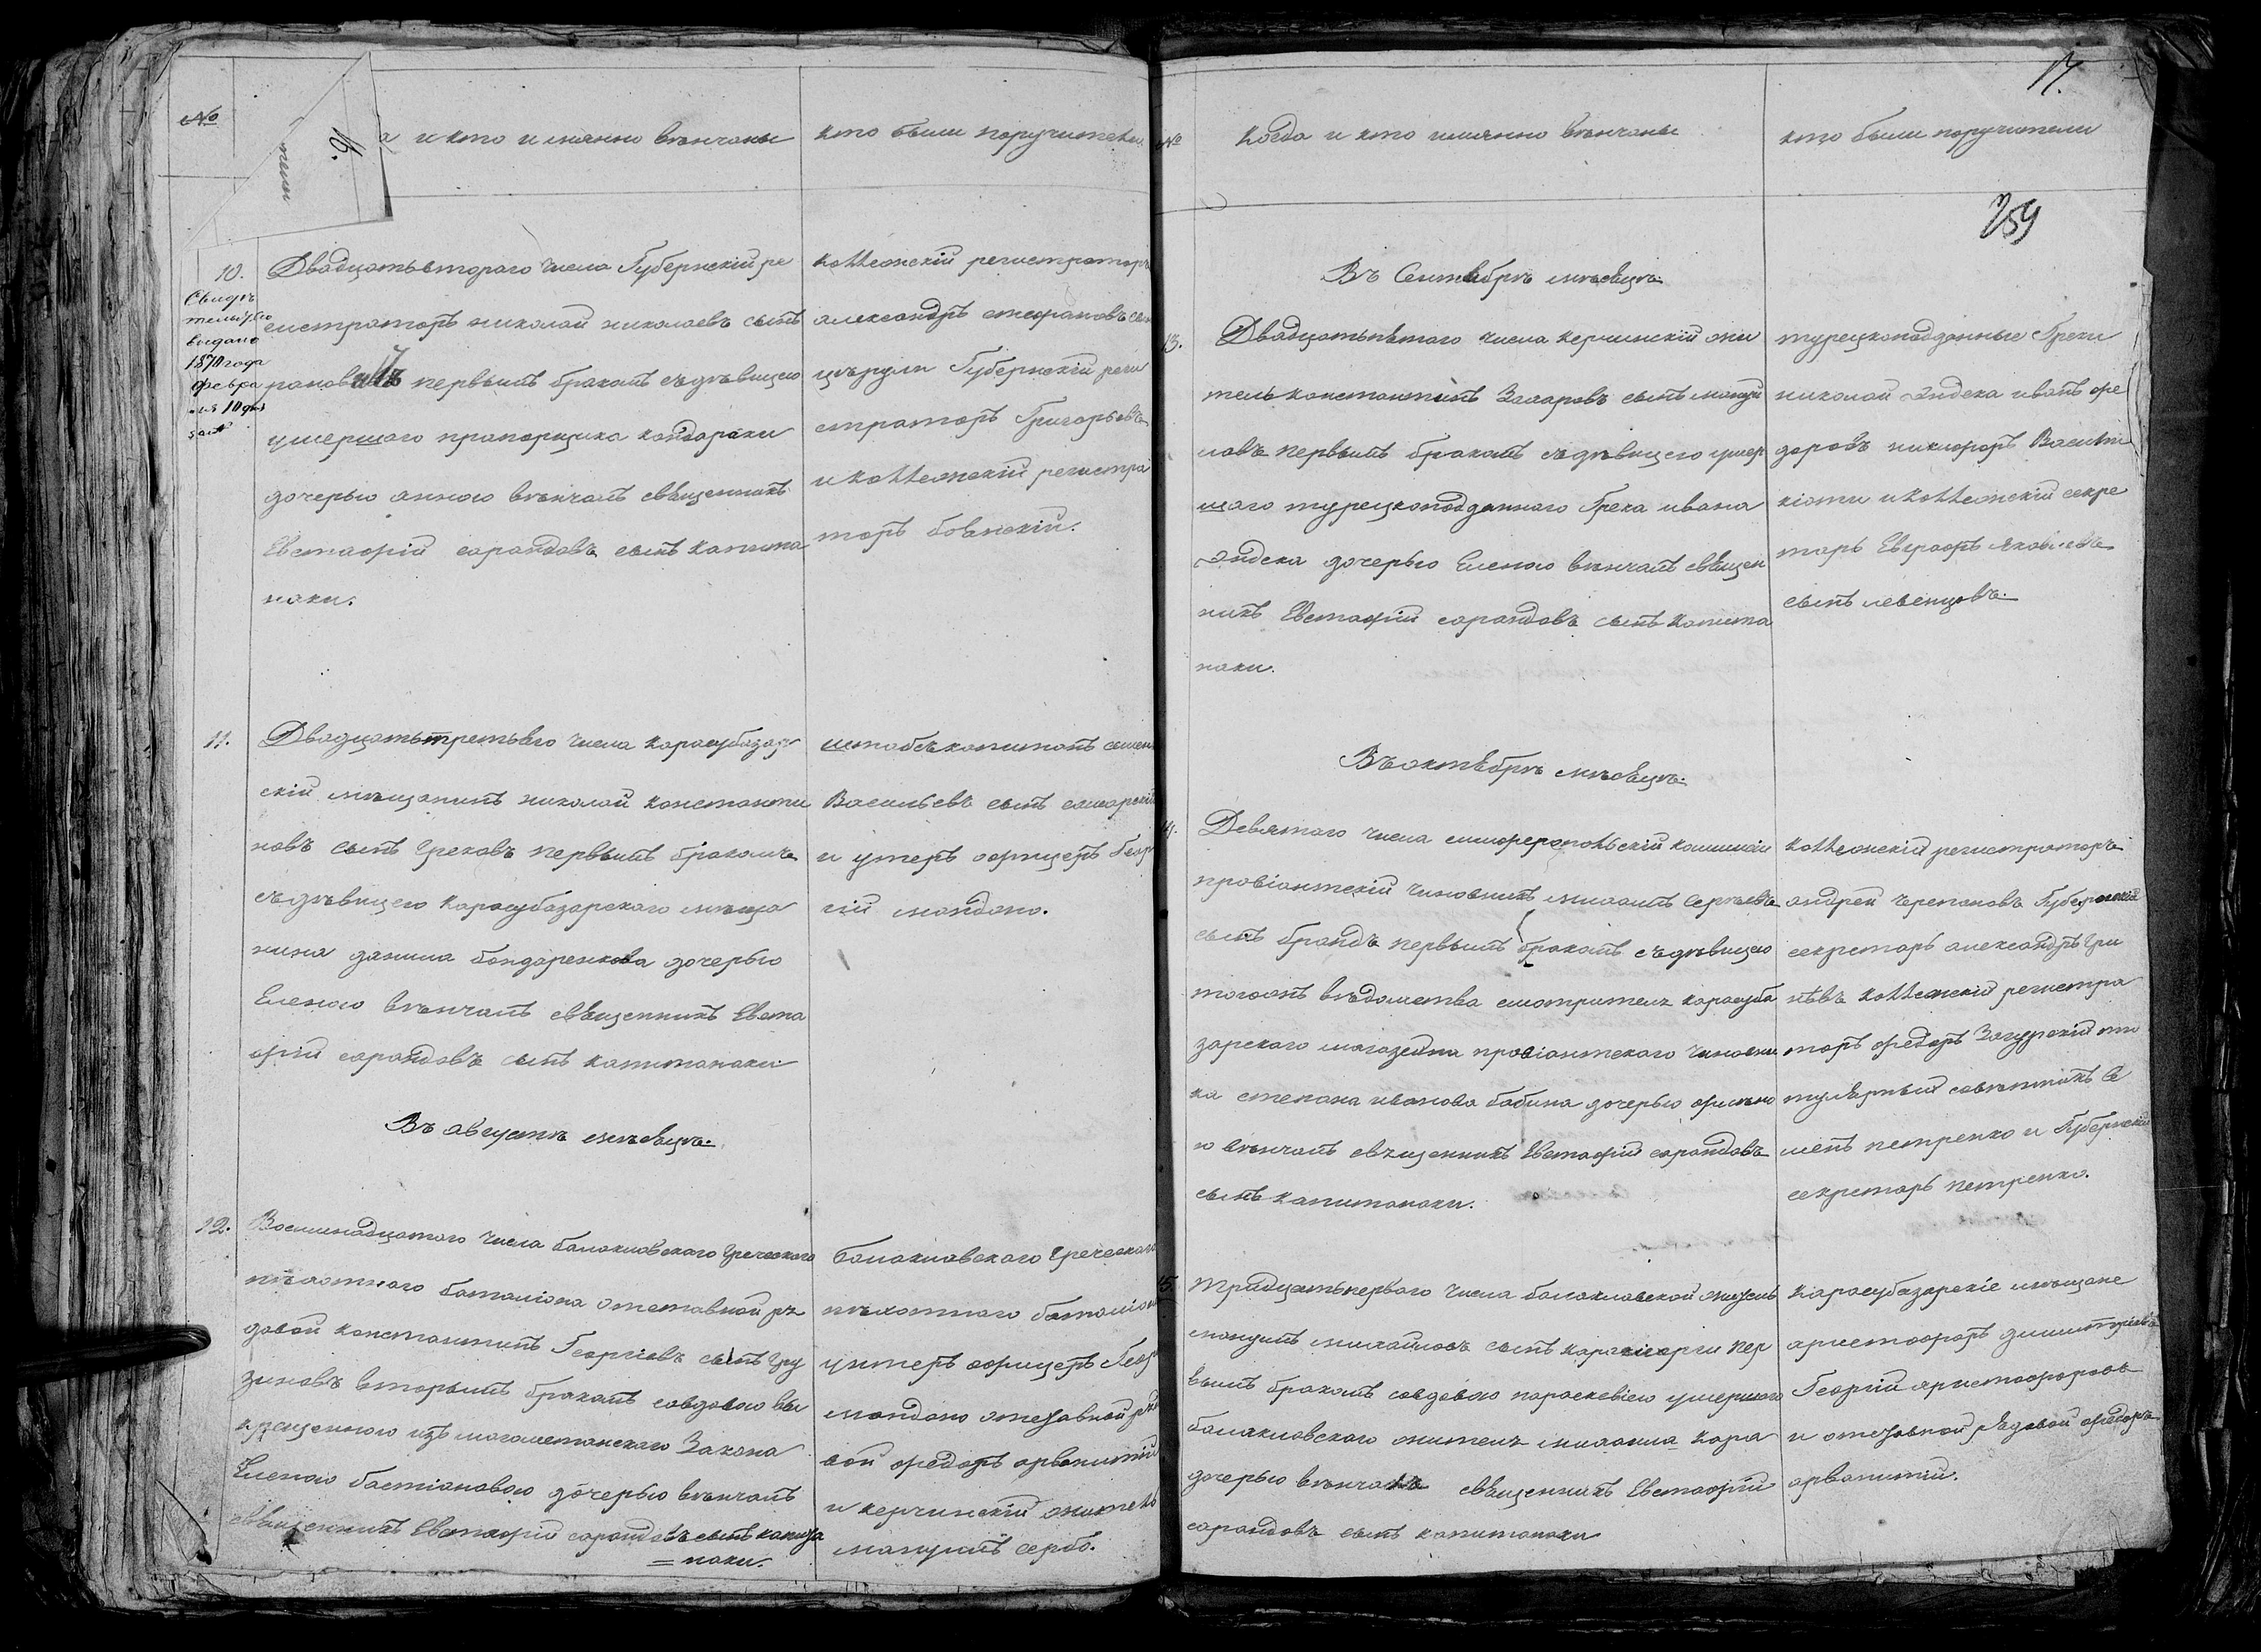 №
а и кто имянно вѣнчаны
кто были поручители.
10.
Свидѣ
тельство
выдано
1870 года
февра
ля 10 дня
Двадцатьвтораго числа Губернскій ре
гистраторъ николай николаевъ сынъ
первымъ бракомъ съдѣвицею
умершаго прапорщика кандараки
дочерью анною вѣнчалъ священникъ
Евстафій сарандовъ сынъ капита
наки.
коллежскій регистраторъ
александръ стефановъ сынъ
църули Губернскій реги
страторъ Григорьевъ
и коллежскій регистра
торъ бованскій.
11.
Двадцатьтретьяго числа карасубазар
скій мѣщанинъ николай константи
новъ сынъ грековъ первымъ бракомъ
съдѣвицею карасубазарскаго мѣща
нина данила бондаренкова дочерью
Еленою вѣнчалъ священникъ Евста
фій сарандовъ сынъ капитанаки
штабсъкапитанъ семенъ
Васильевъ сынъ самарскій
и унтеръ офицеръ Геор
гій мандано.
Въ августѣ мѣсяцѣ.
12.
Восминадцатаго числа балаклавскаго греческаго
пѣхотнаго баталіона отставной ря
довой константинъ Георгіевъ сынъ гру
зиновъ вторымъ бракомъ совдовою вы
крещенною изъ магометанскаго Закона
Еленою бастіановою дочерью вѣнчалъ
священникъ Евстафій сарандовъ сынъ капита
=наки.
балаклавскаго греческаго
пѣхотнаго баталіона
унтеръ офицеръ Геор
мандано отставной рядо
вой федоръ арванитій
и керчинскій житель
мануилъ сербо.
17.
№
Когда и кто имянно вѣнчаны
кто были поручители
259
Въ Сентябрѣ мѣсяцѣ.
13.
Двадцатьпятаго числа керчинскій жи
тель константинъ Захаровъ сынъ мануй
ловъ первымъ бракомъ съдѣвицею умер
шаго турецкоподданнаго Грека ивана
андека дочерью Еленою вѣнчалъ священ
никъ Евстафій сарандовъ сынъ капита
наки.
турецкоподданные Греки
николай андека иванъ фе
доровъ никифоръ Васили
кіоти и коллежскій секре
тарь Евграфъ яковлевъ
сынъ левенцовъ.
Въ октябрѣ мѣсяцѣ.
14.
Девятаго числа симферопольскій комисіи
провіантскій чиновникъ михаилъ сергѣевъ
сынъ брандъ первымъ бракомъ съдѣвицею
тогожъ вѣдомства смотрителя карасуба
зарскаго магазейна провіантскаго чиновни
ка степана иванова бабина дочерью
ю вѣнчалъ священникъ Евстафій сарандовъ
сынъ капитанаки.
коллежскій регистраторъ
андрей черепановъ Губернскій
секретарь александръ гри
нѣвъ коллежскій регистра
торъ федоръ Загурскій ти
тулярный совѣтникъ Се
менъ петренко и Губернскій
секретарь петренко.
15.
тридцатьпервого числа балаклавской житель
мануилъ михайловъ сынъ карагиорги пер
вымъ бракомъ совдовою параскевіею умершаго
балаклавскаго жителя михаила кара
дочерью вѣнчалъ священникъ Евстафій
сарандовъ сынъ капитанаки
карасубазарскіе мѣщане
аристофоръ димитріевъ
Георгій аристофоровъ
и отставной рядовой федоръ
арванитій.